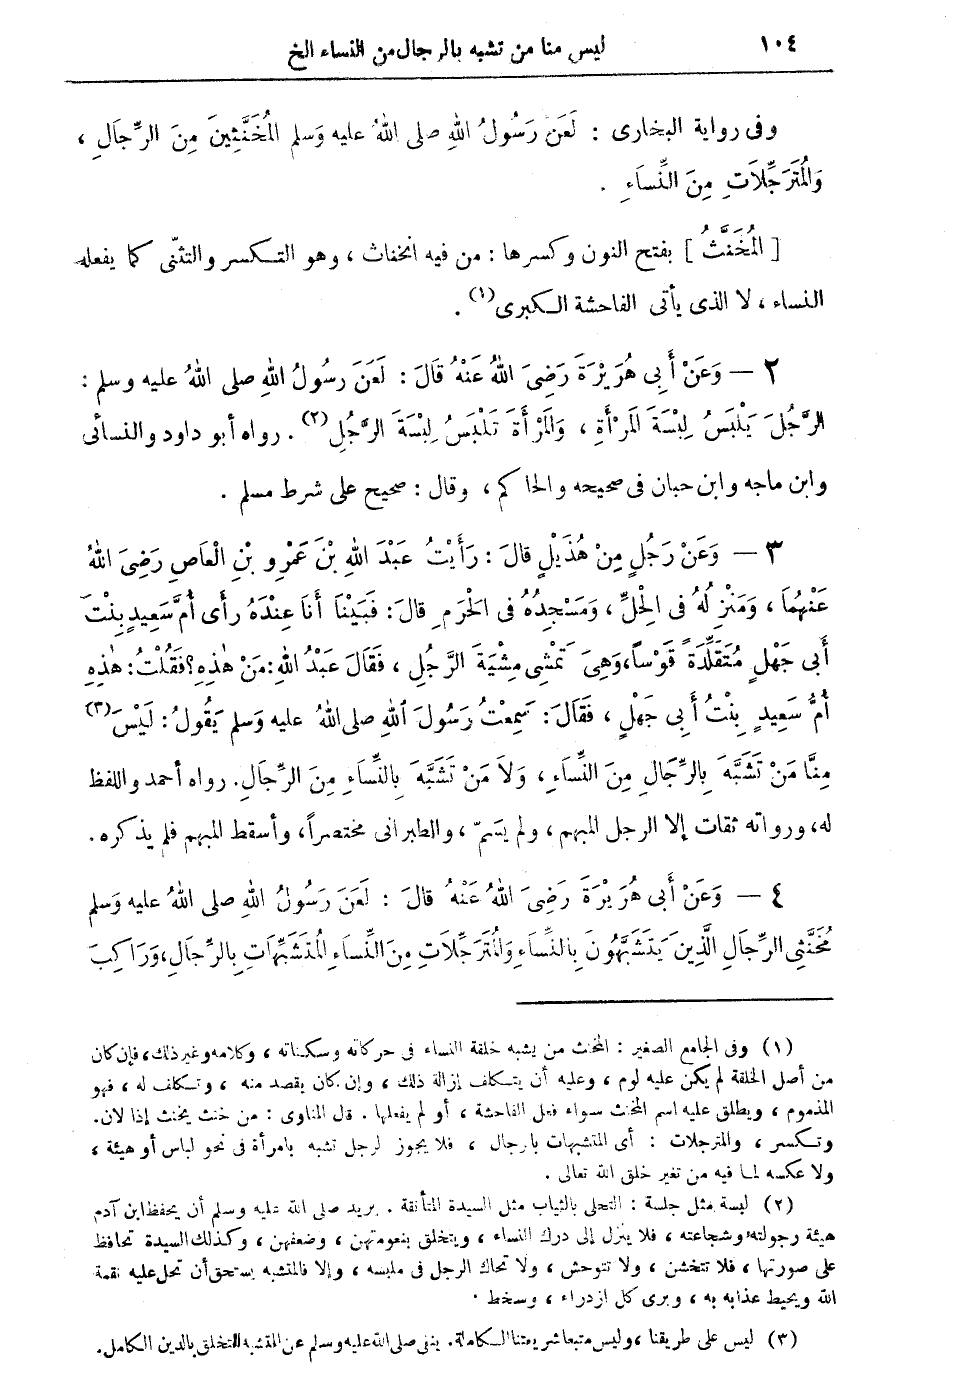 ١٠٤ ليس منا من تشبه بالرجال من النساء الخ
وفى رواية البخارى : لَعَنَ رَسُولُ اللهِ صلى اللهُ عليه وَسلم المُخَنَّثِينَ مِنَ الرِّجَالِ ،
وَالْمُتَرَجِّلَاتِ مِنَ النِّسَاءِ .
[ المُخَنَّثُ ] بفتح النون وكسرها : من فيه انخناث ، وهو التكسر والتثنّى كما يفعله
النساء ، لا الذى يأتى الفاحشة الكبرى(١) .
٢ — وَعَنْ أَبِى هُرَيْرَةَ رَضِىَ اللهُ عَنْهُ قَالَ : لَعَنَ رسُولُ اللهِ صلى اللهُ عليه وسلم :
الرَّجُلَ يَلْبَسُ لِبْسَةَ المَرْأَةِ ، وَالمَرْأَةَ تَلْبَسُ لِبْسَةَ الرَّجُلِ(٢) . رواه أبو داود والنسائى
وابن ماجه وابن حبان فى صحيحه والحاكم ، وقال : صحيح على شرط مسلم .
٣ — وَعَنْ رَجُلٍ مِنْ هُذَيْلٍ قَالَ : رَأَيْتُ عَبْدَ اللهِ بْنَ عَمْرِو بْنِ الْعَاصِ رَضِىَ اللهُ
عَنْهُمَا ، وَمَنْزِلُهُ فى الحِلِّ ، وَمَسْجِدُهُ فى الحَرَمِ قالَ : فَبَيْنَا أَنَا عِنْدَهُ رَأَى أُمَّ سَعِيدٍ بِنْتَ
أَبِى جَهْلٍ مُتَقَلِّدَةً قَوْساً، وَهِىَ تَمْشِى مِشْيَةَ الرَّجُلِ ، فَقَالَ عَبْدُ اللهِ: مَنْ هٰذِهِ؟ فَقُلْتُ: هٰذِهِ
أُمُّ سَعِيدٍ بِنْتُ أَبِى جَهْلٍ ، فَقَالَ : سَمِعْتُ رَسُولَ اللهِ صلى اللهُ عليه وَسلم يَقُولُ : لَيْسَ(٣)
مِنَّا مَنْ تَشَبَّهَ بِالرِّجَالِ مِنَ النِّسَاءِ ، وَلاَ مَنْ تَشَبَّهَ بِالنِّسَاءِ مِنَ الرِّجَالِ. رواه أحمد واللفظ
له، ورواته ثقات إلا الرجل المبهم ، ولم يسمّ ، والطبرانى مختصراً، وأسقط المبهم فلم يذكره .
٤ — وَعَنْ أَبِى هُرَيْرَةَ رَضِىَ اللهُ عَنْهُ قالَ : لَعَنَ رَسُولُ اللهِ صلى اللهُ عليه وَسلم
مُخَنَّثِى الرِّجَالِ الَّذِينَ يَتَشَبَّهُونَ بِالنِّسَاءِ وَالْمُتَرَجِّلَاتِ مِنَ النِّسَاءِ الْمُتَشَبِّهَاتِ بِالرِّجَالِ، وَرَاكِبَ
(١) وفى الجامع الصغير : المخنث من يشبه خلقة النساء فى حركاته وسكناته ، وكلامه وغير ذلك، فإن كان
من أصل الخلقة لم يكن عليه لوم ، وعليه أن يتكلف إزالة ذلك ، وإن كان يقصد منه ، وتكلف له ، فهو
المذموم ، ويطلق عليه اسم المخنث سواء فعل الفاحشة ، أو لم يفعلها . قال المناوى : من خنث يخنث إذا لان.
وتكسر ، والمترجلات : أى المتشبهات بالرجال ، فلا يجوز لرجل تشبه بامرأة فى نحو لباس أو هيئة ،
ولا عكسه لما فيه من تغير خلق الله تعالى .
(٢) لبسة مثل جلسة : التحلى بالثياب مثل السيدة المتأنقة . يريد صلى الله عليه وسلم أن يحفظ ابن آدم
هيئة رجولته وشجاعته ، فلا ينزل إلى درك النساء ، ويتخلق بنعومتهن ، وضعفهن ، وكذلك السيدة تحافظ
على صورتها ، فلا تتخشن ، ولا تتوحش ، ولا تحاك الرجل فى ملبسه ، وإلا فالمتشبه يستحق أن تحل عليه نقمة
الله ويحيط عذابه به ، ويرى كل ازدراء ، وسخط .
(٣) ليس على طريقنا ، وليس متبعا شريعتنا الكاملة . ينفى صلى الله عليه وسلم عن المتشبه التخلق بالدين الكامل .